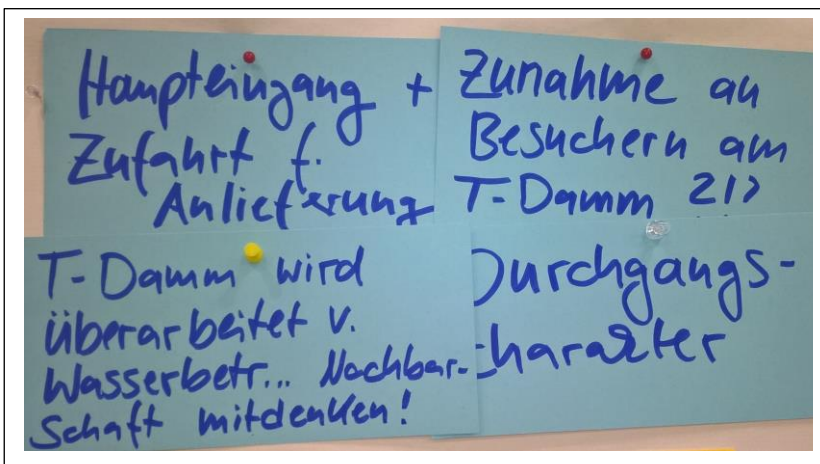 Haupteingang +
Zufahrt f.
Anlieferung
Zunahme an
Besuchern am
T-Damm
T-Damm wird
überarbeitet v.
Wasserbetr... Nachbar-
schaft mitdenken!
Durchgangs-
charakter